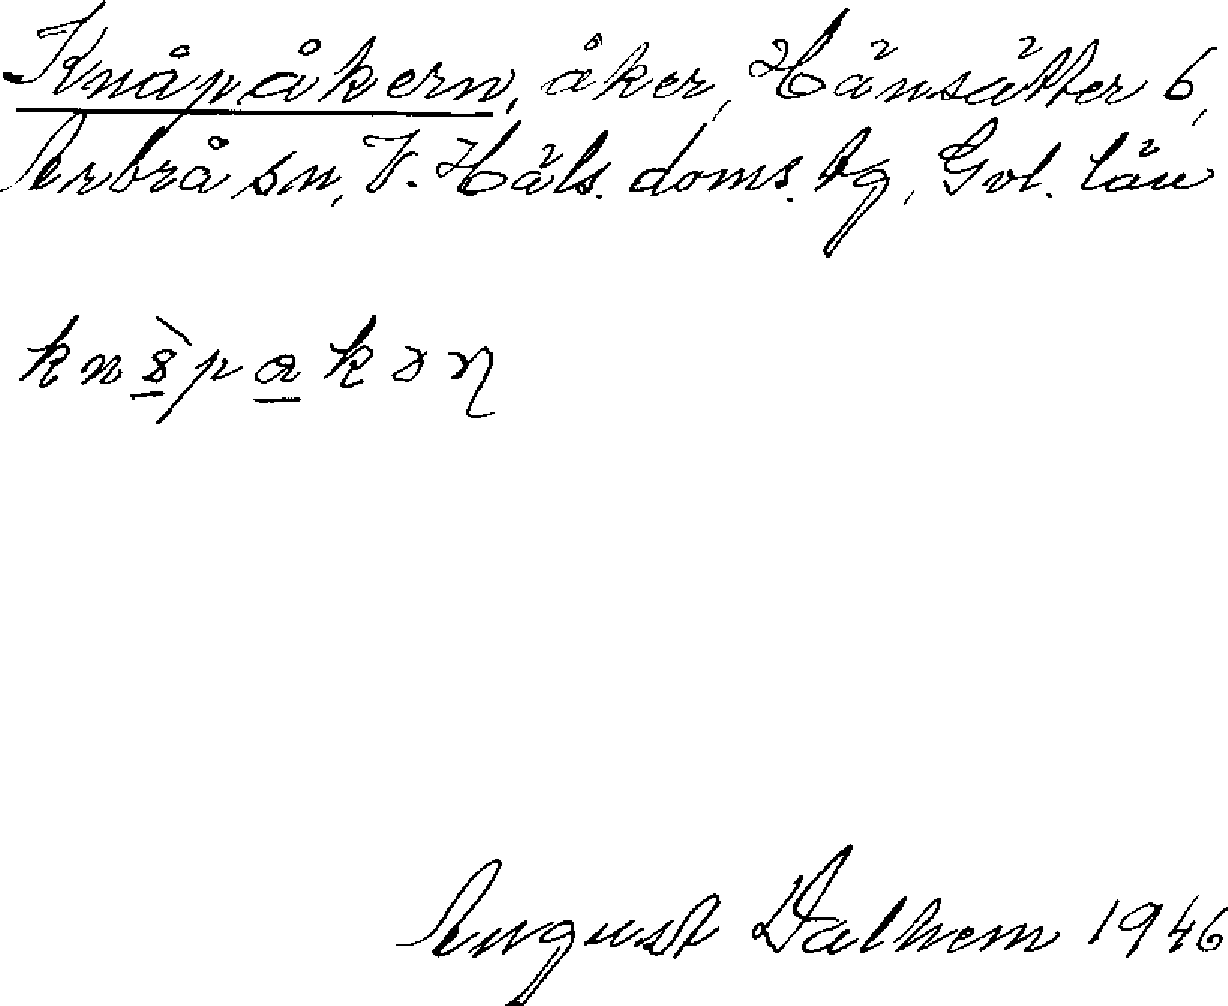 Knåpåkern, åker, Hänsätter 6,
Arbrå sn, V. Häls. doms. tg, Gvl. län
August Dalhem 1946